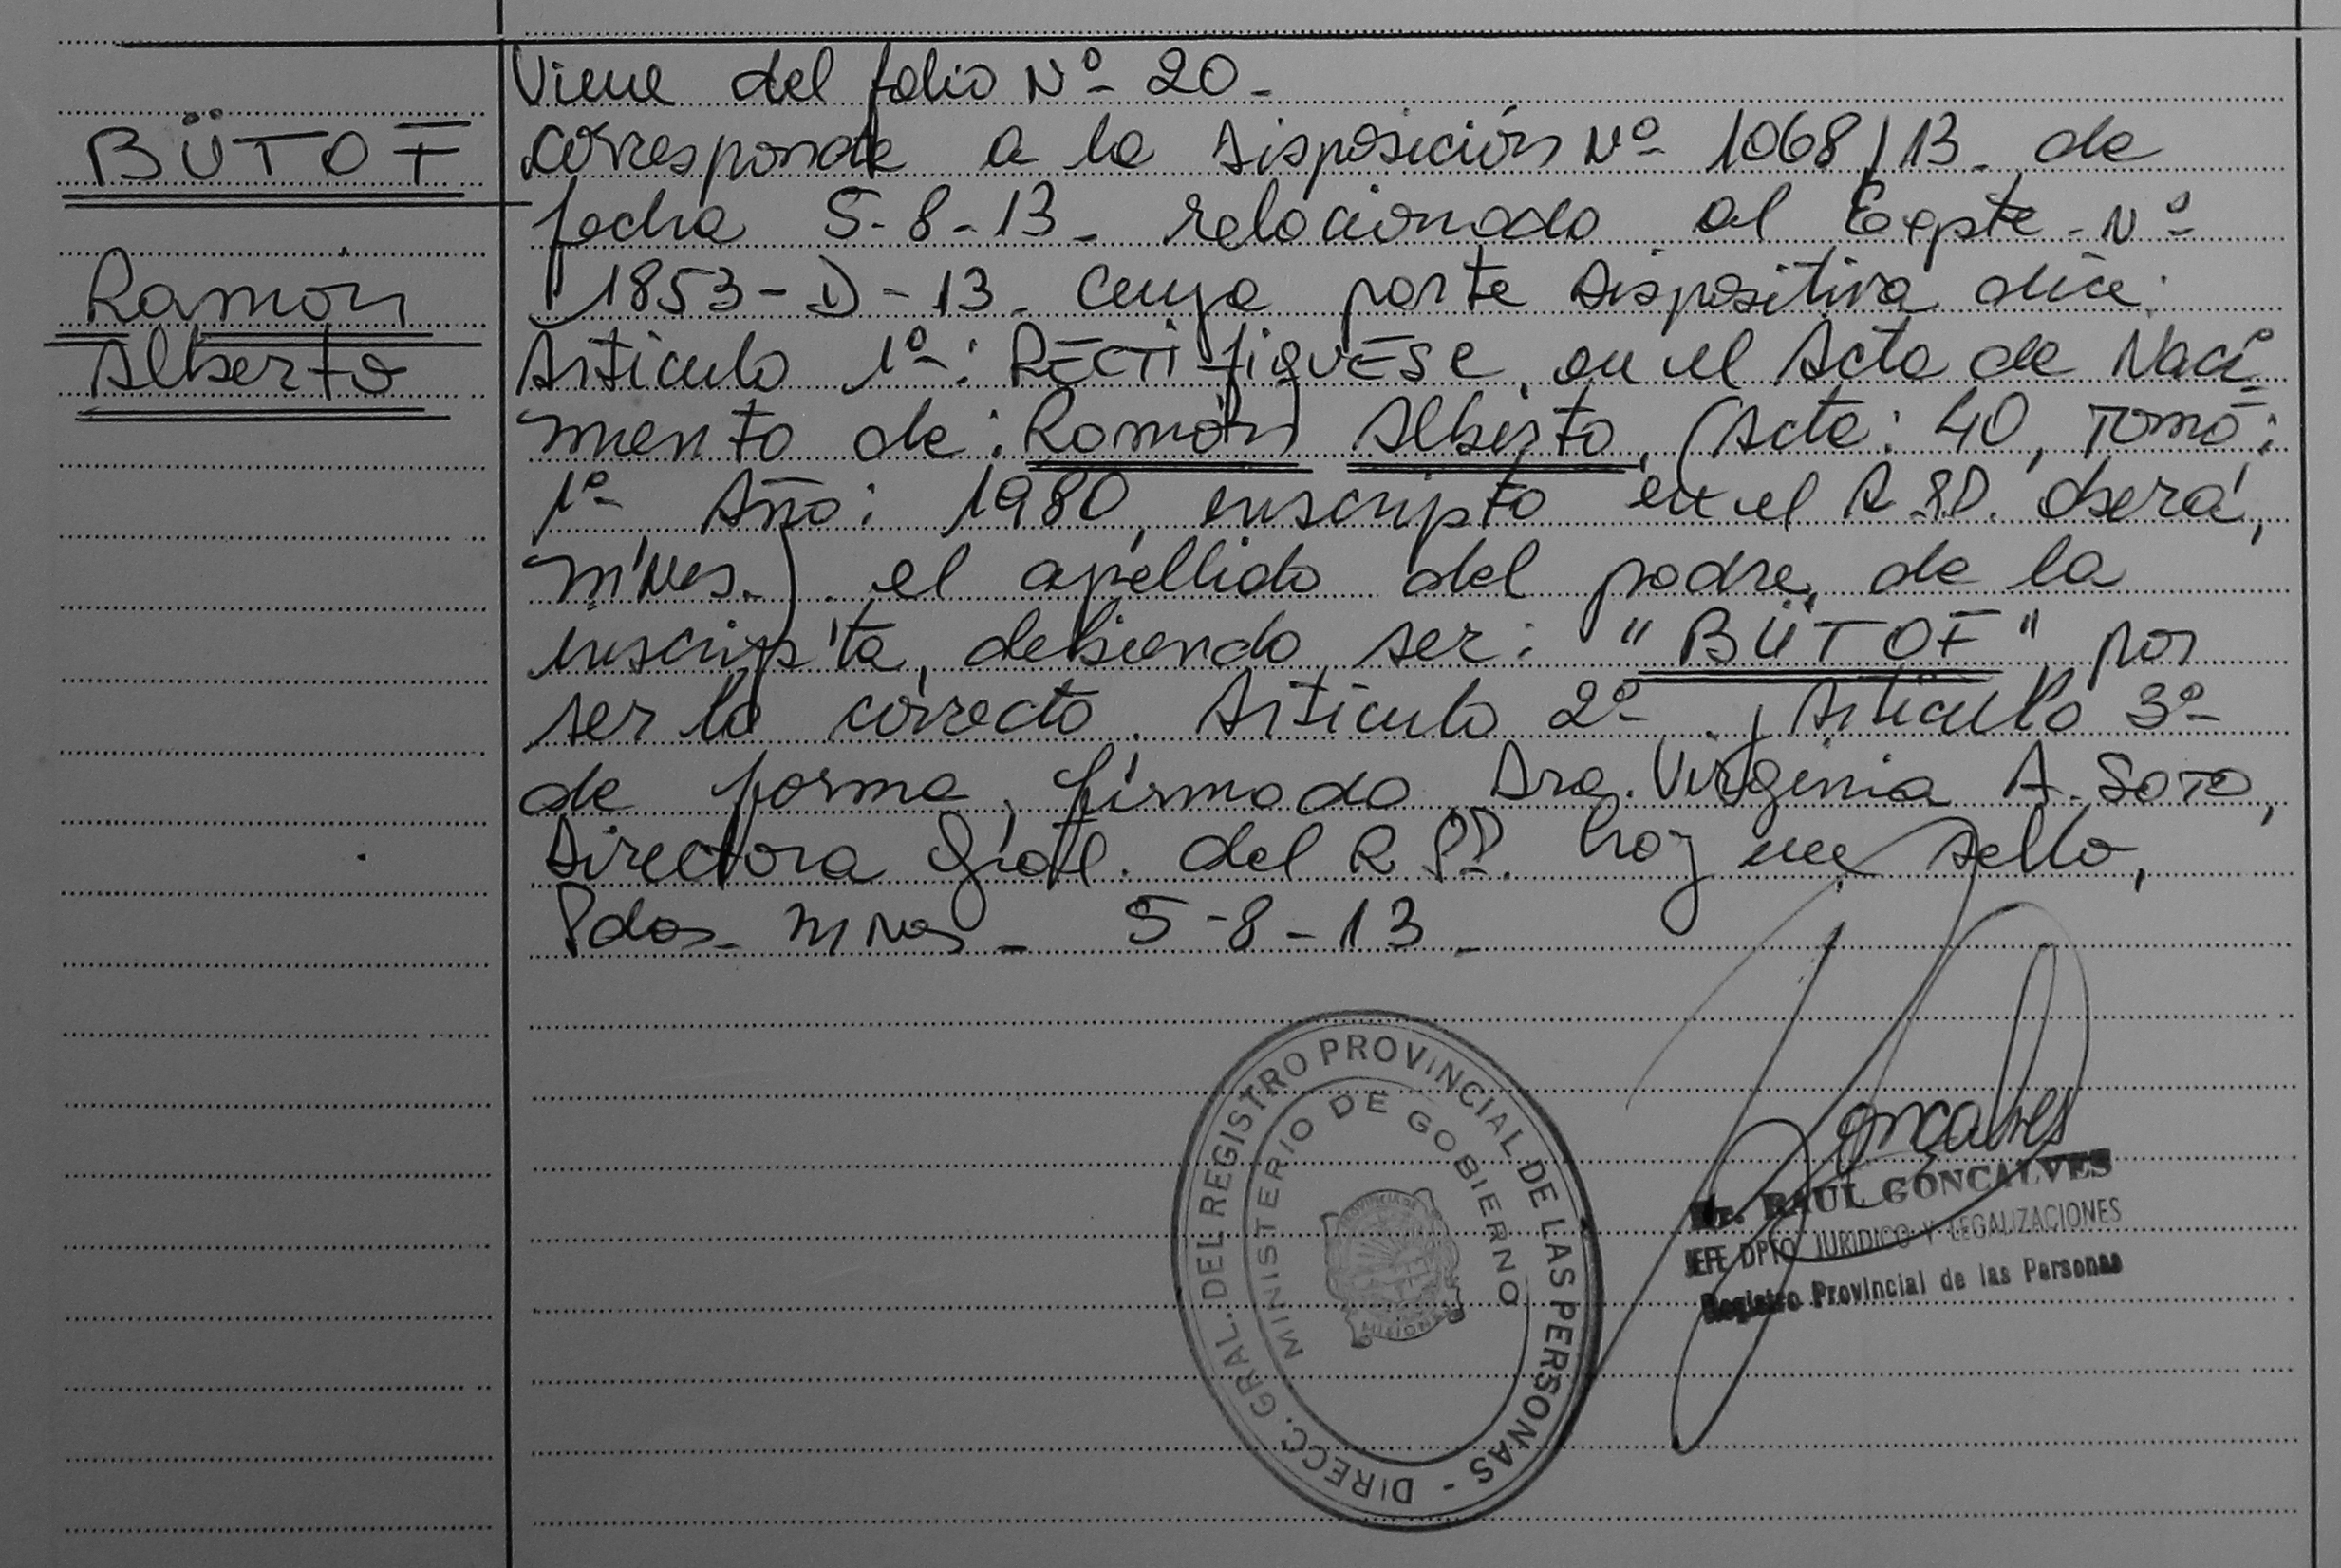 BÜTOF
Ramón
Alberto
Viene del folio Nº 20-
corresponde a la Disposición Nº 1068/13- de
fecha 5-8-13- relacionado al Expte-Nº
1853-D-13- cuya parte dispositiva dice:
Artículo 1º: RECTIFIQUESE, en el Acta de Naci
miento de: Ramón Alberto, (Acta: 40, Tomo:
1º Año: 1980, inscripto en el R.P.P. Oberá,
Mnes.). el apellido del padre, de la
inscripta, debiendo ser: "BÜTOF" por
ser lo correcto. Artículo 2º y Artículo 3º
de forma, firmado Dra. Virginia A. SOTO,
Directora Gral. del R.P.P. hay un sello,
Pdas- Mnes- 5-8-13-
DIRECC. GRAL. DEL REGISTRO PROVINCIAL DE LAS PERSONAS -
MINISTERIO DE GOBIERNO
PROVINCIA DE
MISIONES
Gonçalves
RAUL GONCALVES
JEFE DPTO JURIDICO Y LEGALIZACIONES
Registro Provincial de las Personas